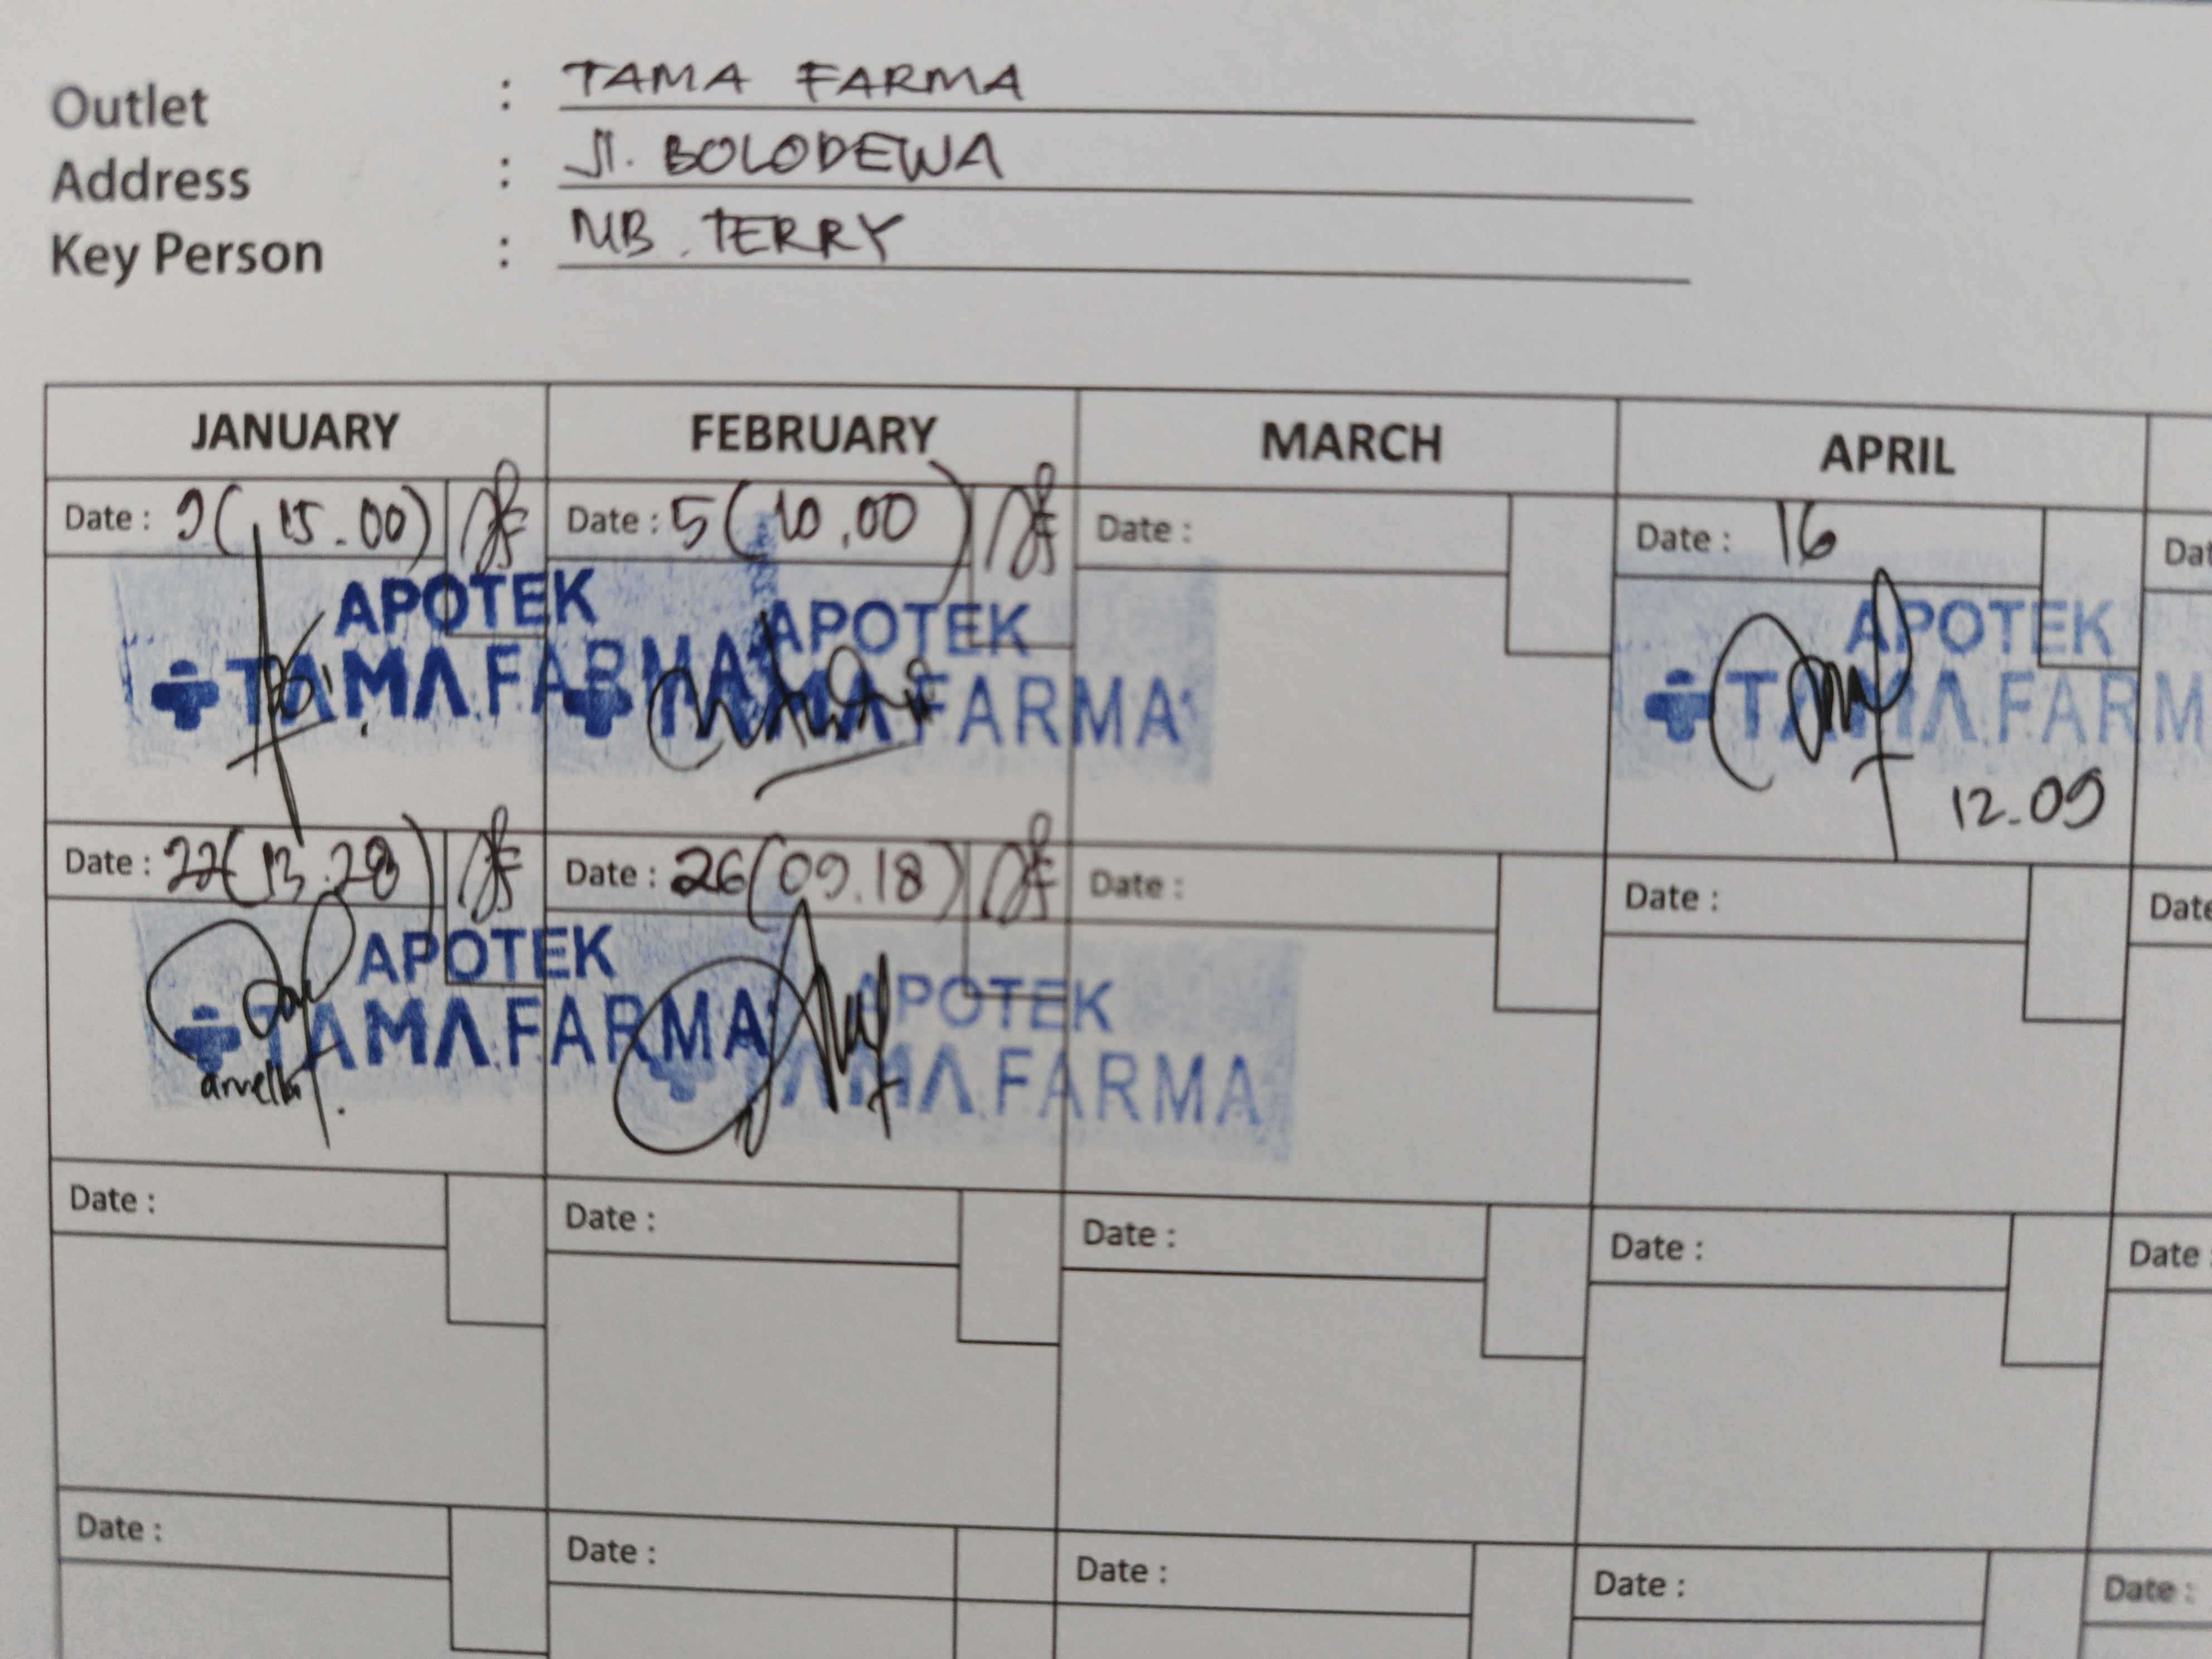 Outlet : TAMA FARMA
Address : Jl. BOLODEWA
Key Person : MB. TERRY
JANUARY FEBRUARY MARCH APRIL
Date : 9 (15.00) Date : 5 (10.00) Date : Date : 16 Dat
APOTEK APOTEK APOTEK
TAMA FARMA TAMA FARMA TAMA FARM
12.09
Date : 22 (13.28) Date : 26 (09.18) Date : Date : Date
APOTEK APOTEK
TAMA FARMA TAMA FARMA
Date : Date : Date : Date : Date :
Date : Date : Date : Date : Date :